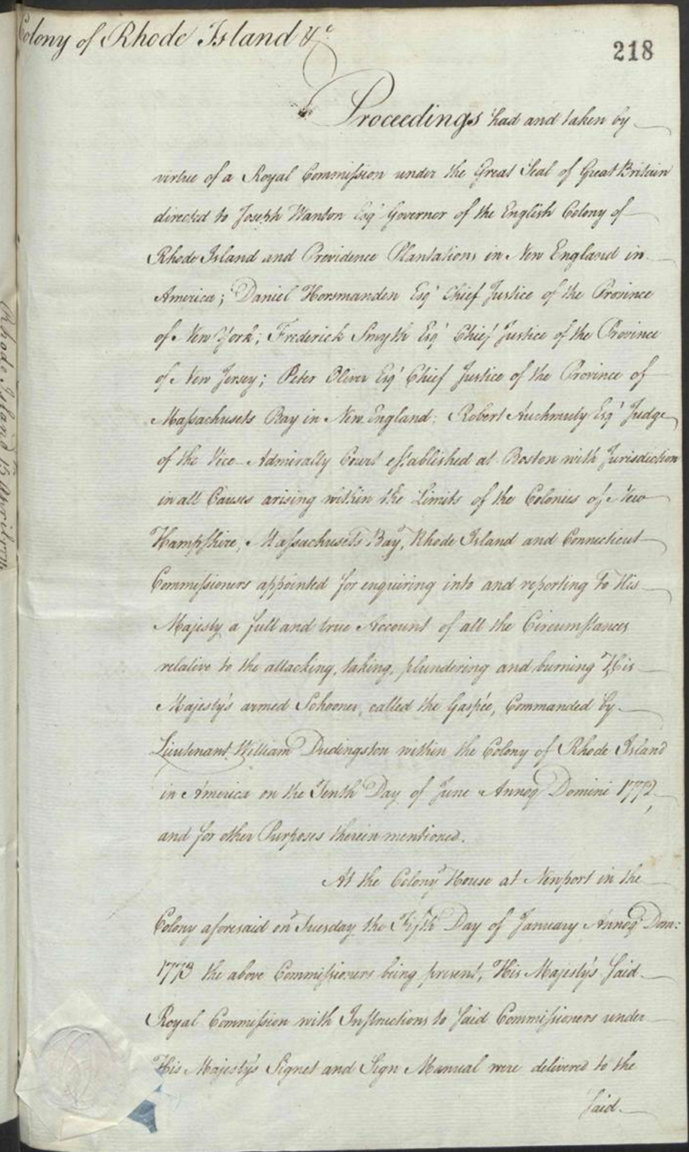 Colony of Rhode Island &c
218
Proceedings had and taken by
virtue of a Royal Commission under the Great Seal of Great Britain
directed to Joseph Wanton Esqr Governor of the English Colony of
Rhode Island and Providence Plantations in New England in
America; Daniel Horsmanden Esqr Chief Justice of the Province
of New York; Frederick Smyth Esqr Chief Justice of the Province
of New Jersey; Peter Oliver Esqr Chief Justice of the Province of
Massachusets Bay in New England; Robert Auchmuty Esqr Judge
of the Vice Admiralty Court established at Boston with Jurisdiction
in all Causes arising within the Limits of the Colonies of New
Hampshire, Massachusets Bay, Rhode Island and Connecticut
Commissioners appointed for enquiring into and reporting to His
Majesty a full and true Account of all the Circumstances
relative to the attacking, taking, plundering and burning His
Majesty's armed Schooner, called the Gaspée, Commanded by
Lieutenant William Dudingston within the Colony of Rhode Island
in America on the Tenth Day of June Annoq Domini 1772,
and for other Purposes therein mentioned.
At the Colony House at Newport in the
Colony aforesaid on Tuesday the Fifth Day of January Annoq Dom:
1773 the above Commissioners being present, His Majesty's said
Royal Commission with Instructions to said Commissioners under
His Majesty's Signet and Sign Manual were delivered to the
said
Rhode Island